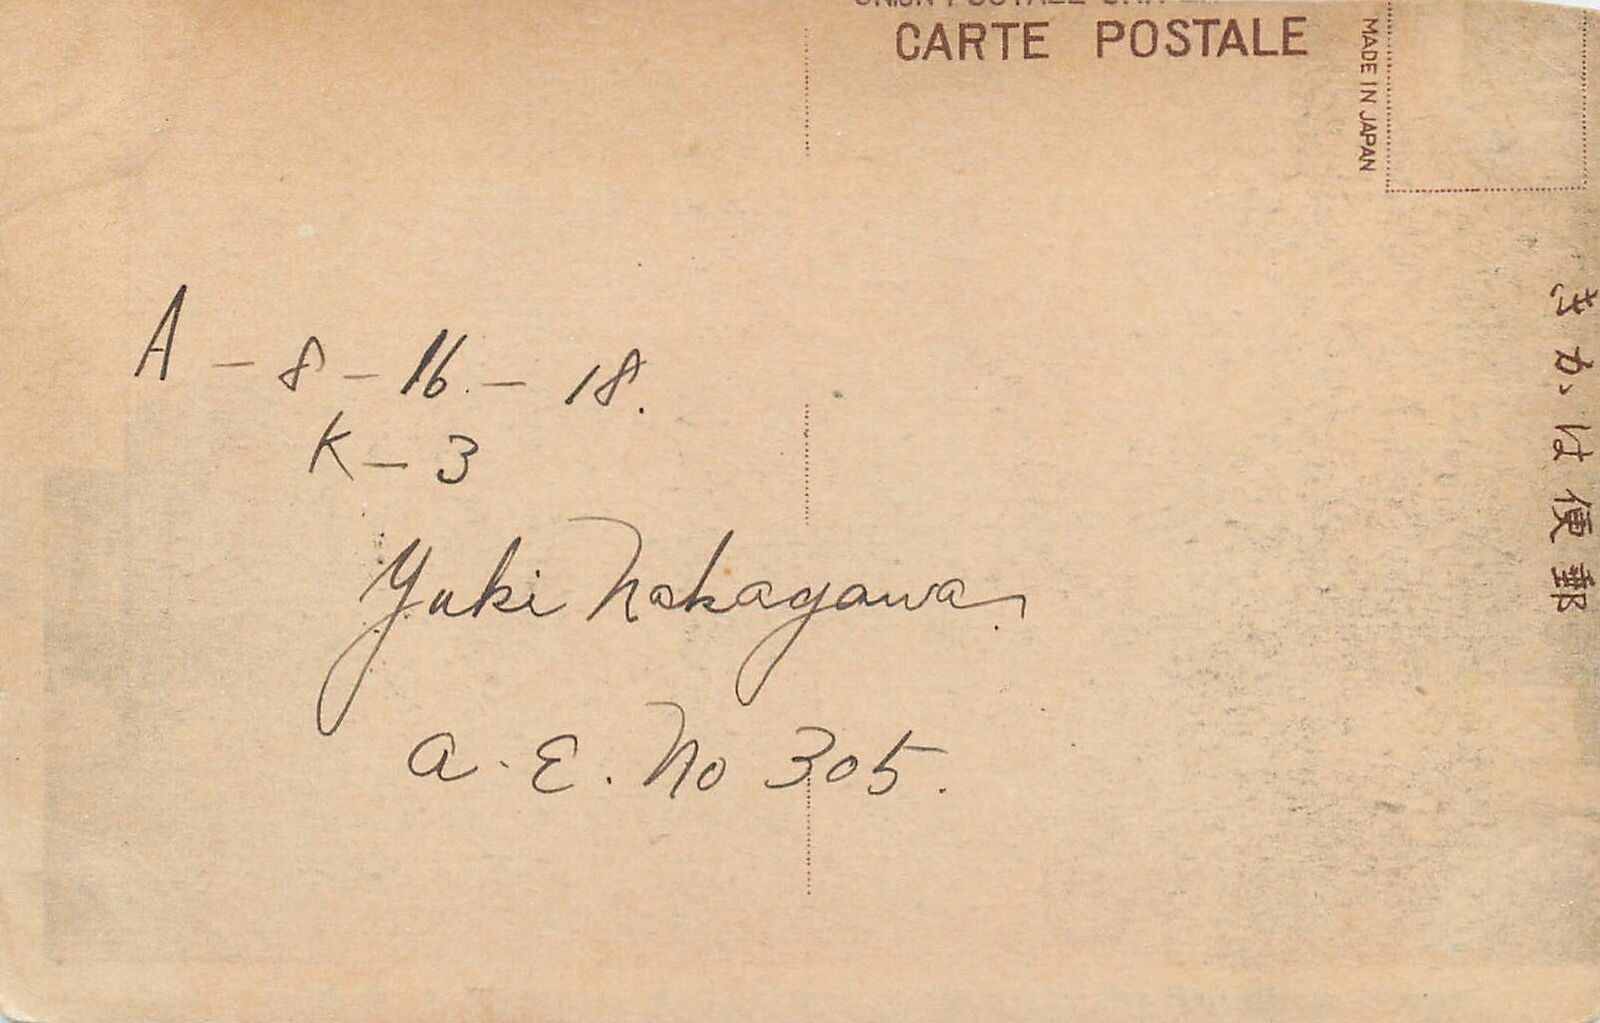 CARTE POSTALE
MADE IN JAPAN
きかは便郵
A - 8 - 16. - 18.
K - 3
Yuki Nakagawa
a. E. No 305.